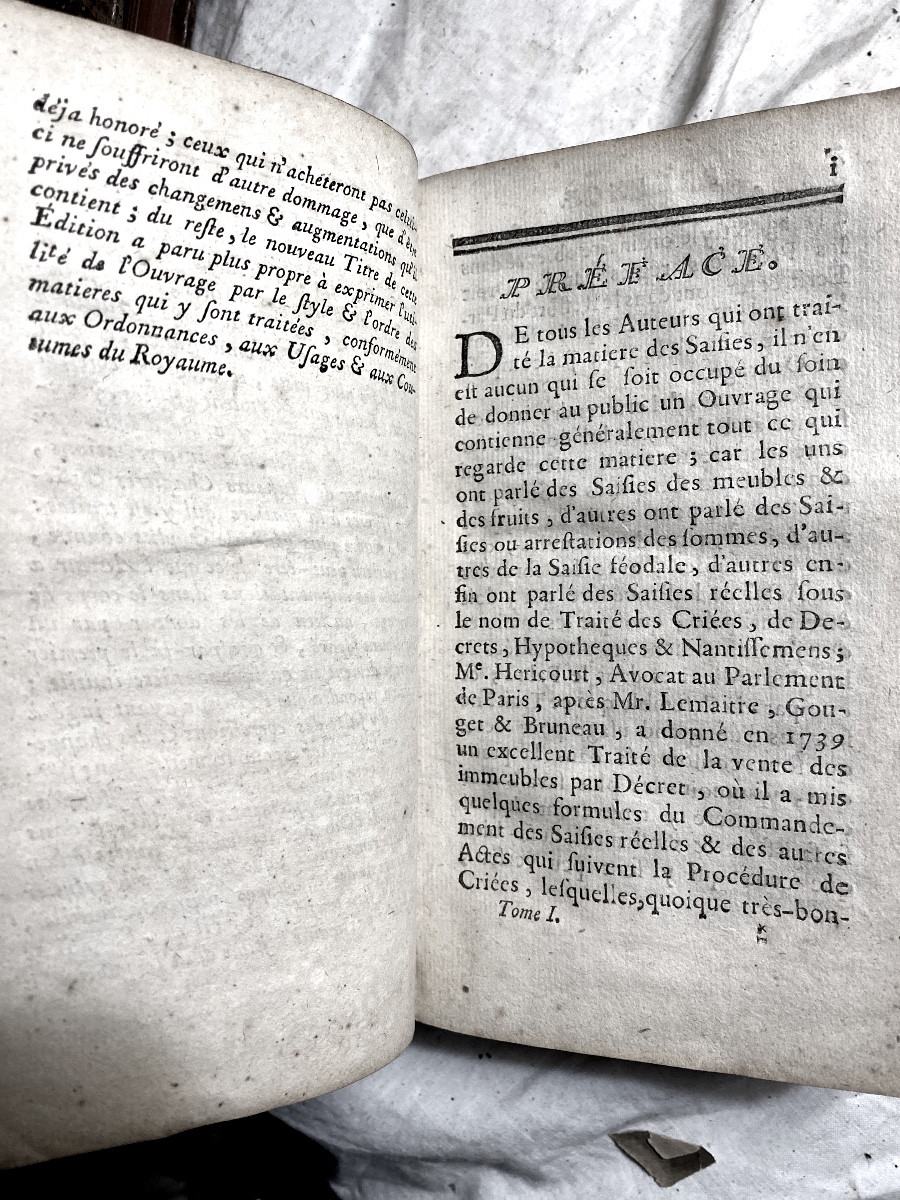 déja honoré ; ceux qui n'achéteront pas celui-
ci ne ſouffriront d'autre dommage, que d'être
privés des changemens & augmentations qu'il
contient ; du reſte, le nouveau Titre de cette
Édition a paru plus propre à exprimer l'uti-
lité de l'Ouvrage par le ſtyle & l'ordre des
matieres qui y ſont traitées, conformément
aux Ordonnances, aux Uſages & aux Cou-
tumes du Royaume.
i
PRÉFACE.
DE tous les Auteurs qui ont trai-
té la matiere des Saiſies, il n'en
eſt aucun qui ſe ſoit occupé du ſoin
de donner au public un Ouvrage qui
contienne généralement tout ce qui
regarde cette matiere ; car les uns
ont parlé des Saiſies des meubles &
des fruits, d'autres ont parlé des Sai-
ſies ou arreſtations des ſommes, d'au-
tres de la Saiſie féodale, d'autres en-
fin ont parlé des Saiſies réelles ſous
le nom de Traité des Criées, de De-
crets, Hypotheques & Nantiſſemens ;
Me. Hericourt, Avocat au Parlement
de Paris, après Mr. Lemaitre, Gou-
get & Bruneau, a donné en 1739
un excellent Traité de la vente des
immeubles par Décret, où il a mis
quelques formules du Commande-
ment des Saiſies réelles & des autres
Actes qui ſuivent la Procédure de
Criées, leſquelles, quoique très-bon-
Tome I.
*